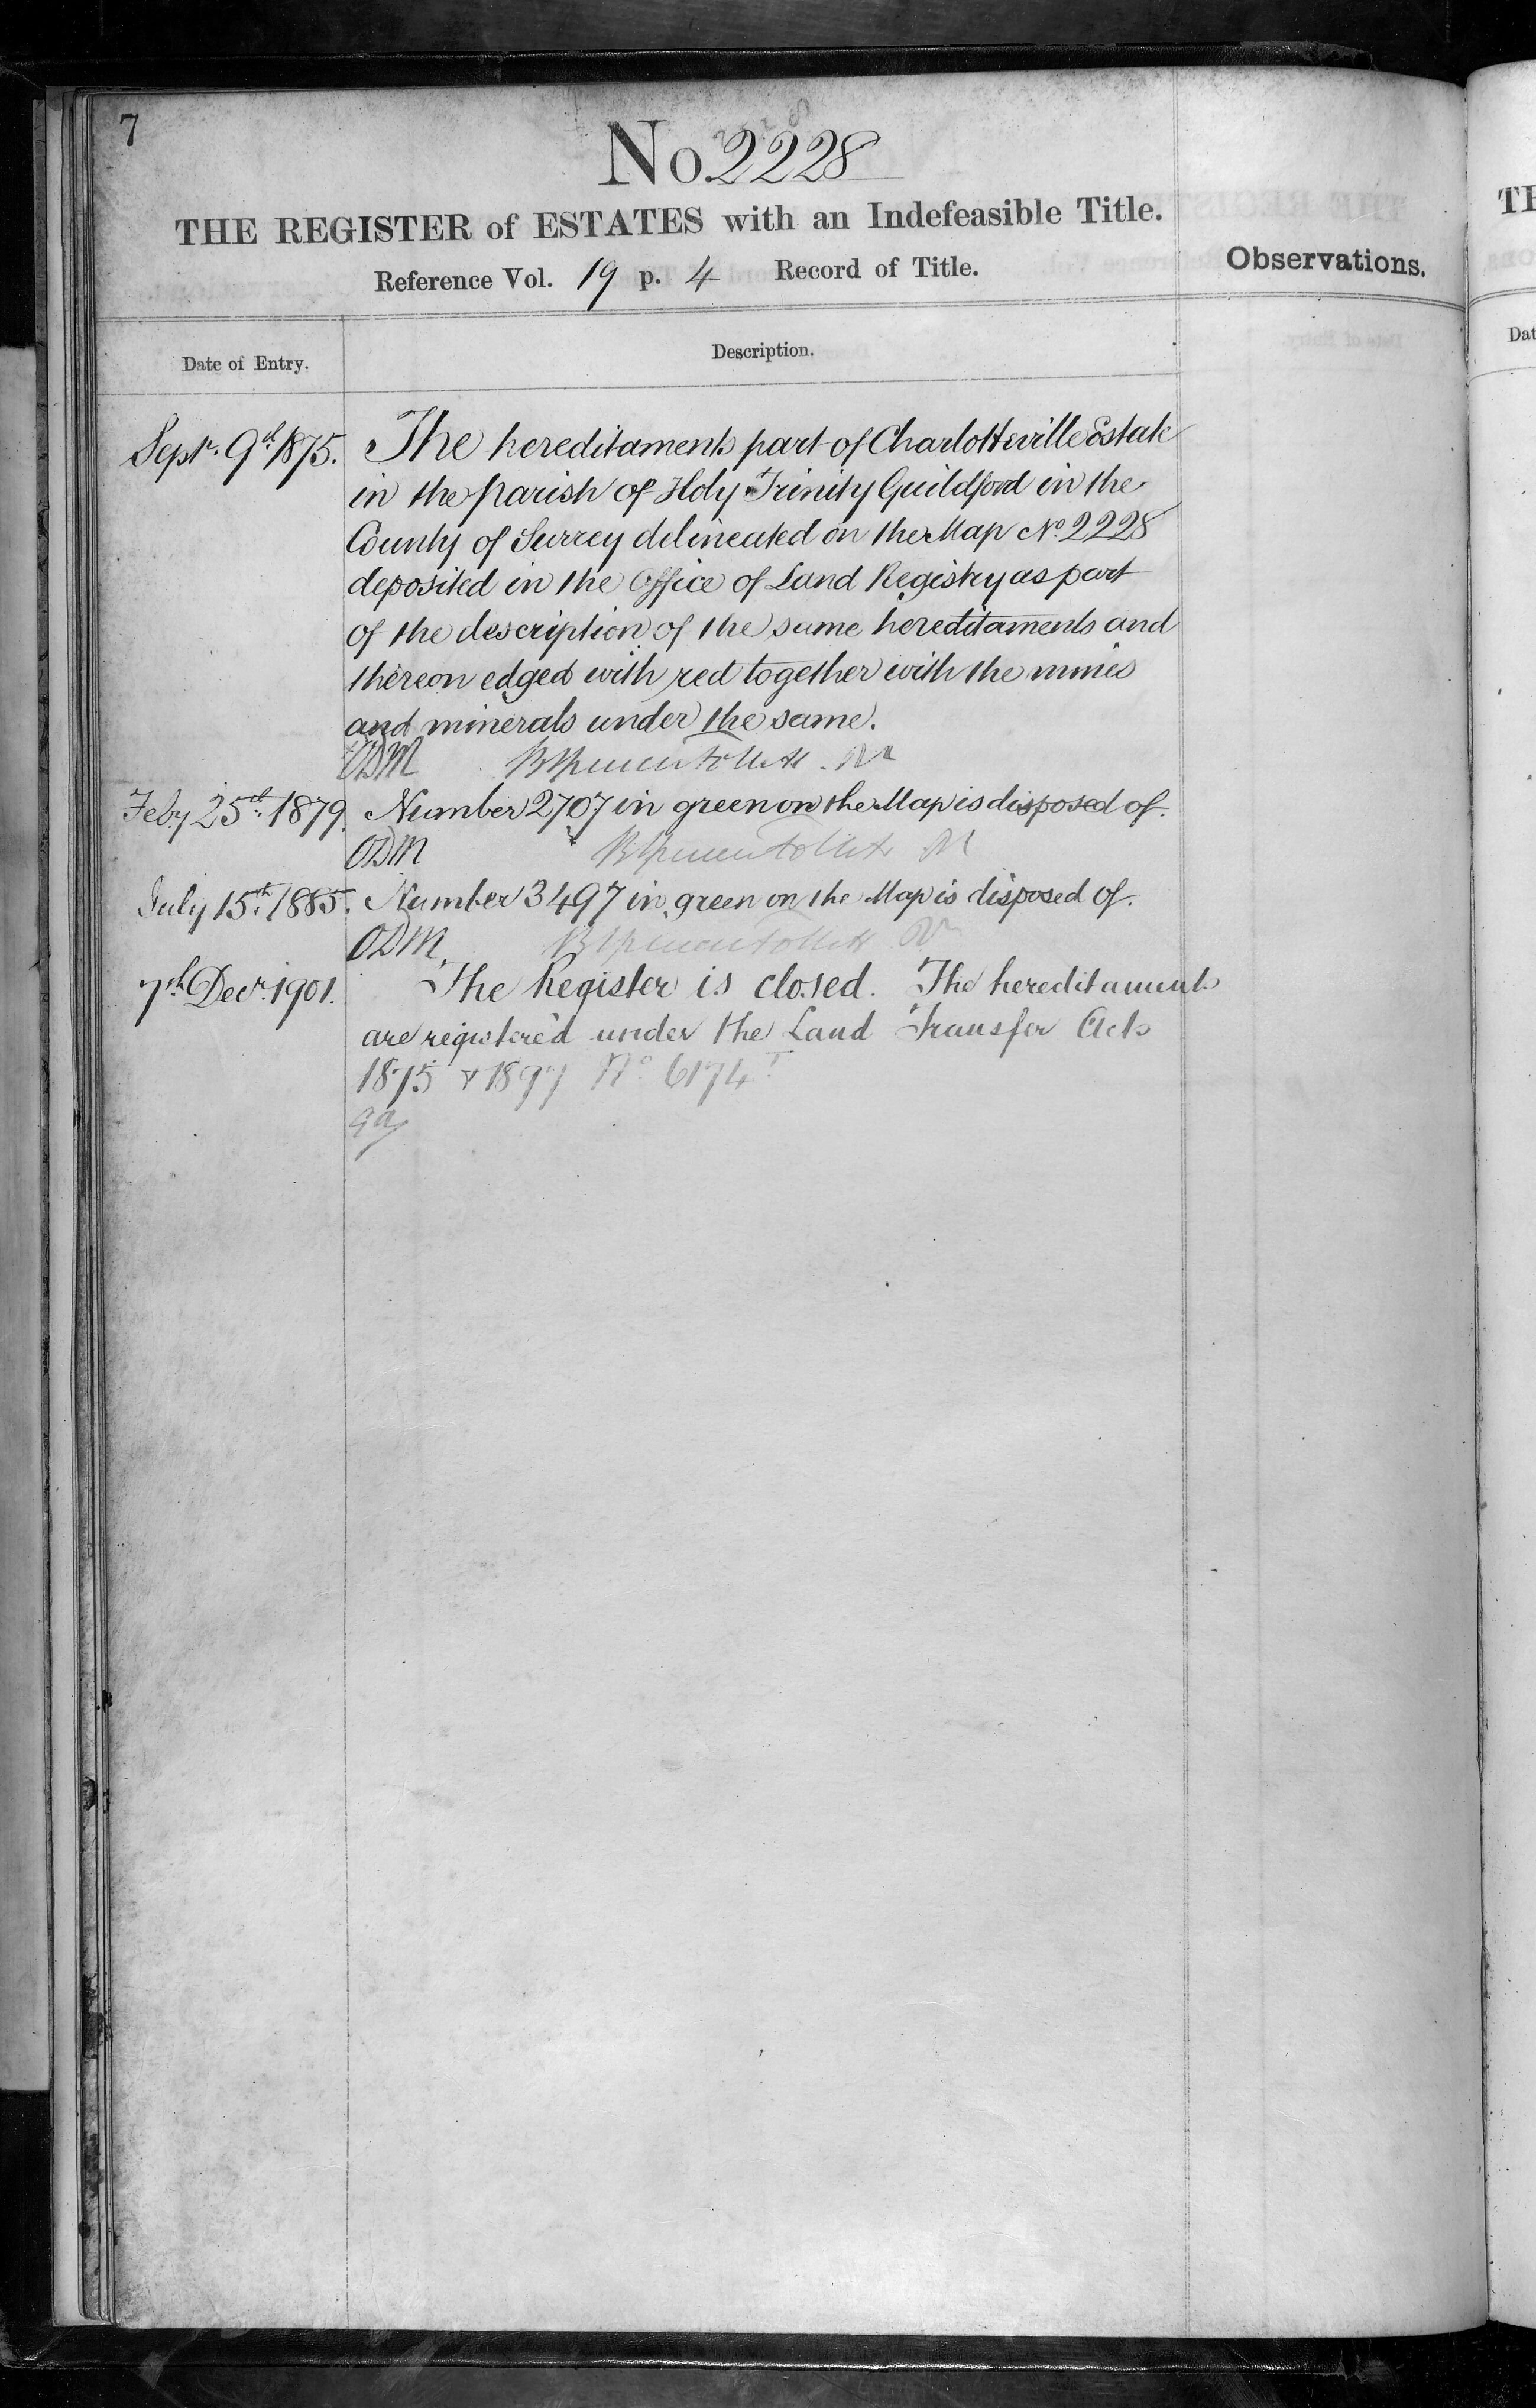 7
No. 2228
THE REGISTER of ESTATES with an Indefeasible Title.
Reference Vol. 19 p. 4 Record of Title.
Observations.
Date of Entry.
Description.
Septr. 9th 1875. The hereditaments part of Charlotteville Estate
in the parish of Holy Trinity Guildford in the
County of Surrey delineated on the Map No. 2228
deposited in the Office of Land Registry as part
of the description of the same hereditaments and
thereon edged with red together with the mines
and minerals under the same.
ODM
Feby 25th 1879. Number 2707 in green on the Map is disposed of.
ODM
July 15th 1885. Number 3497 in green on the Map is disposed of.
ODM
7th Decr. 1901. The Register is closed. The hereditaments
are registered under the Land Transfer Acts
1875 & 1897 No 6174